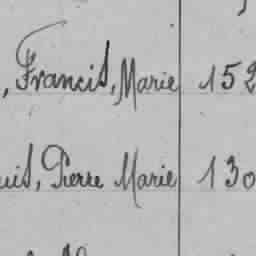 , Francis, Marie 152
uis, Pierre Marie 130